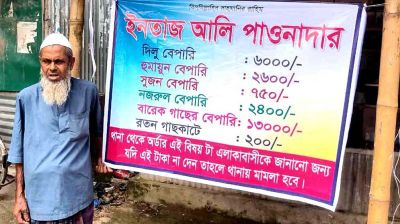 বিসমিল্লাহির রাহমানির রাহিম
ইনতাজ আলি পাওনাদার
দিলু বেপারি : ৬০০০/-
হুমায়ুন বেপারি : ২৬০০/-
সুজন বেপারি : ৭৫০/-
নজরুল বেপারী : ২৪০০/-
বারেক গাছের বেপারি: ১৩০০০/-
রতন গাছকাটে : ২০০/-
থানা থেকে অর্ডার এই বিষয় টা এলাকাবাসীকে জানানো জন্য
যদি এই টাকা না দেন তাহলে থানায় মামলা হবে।